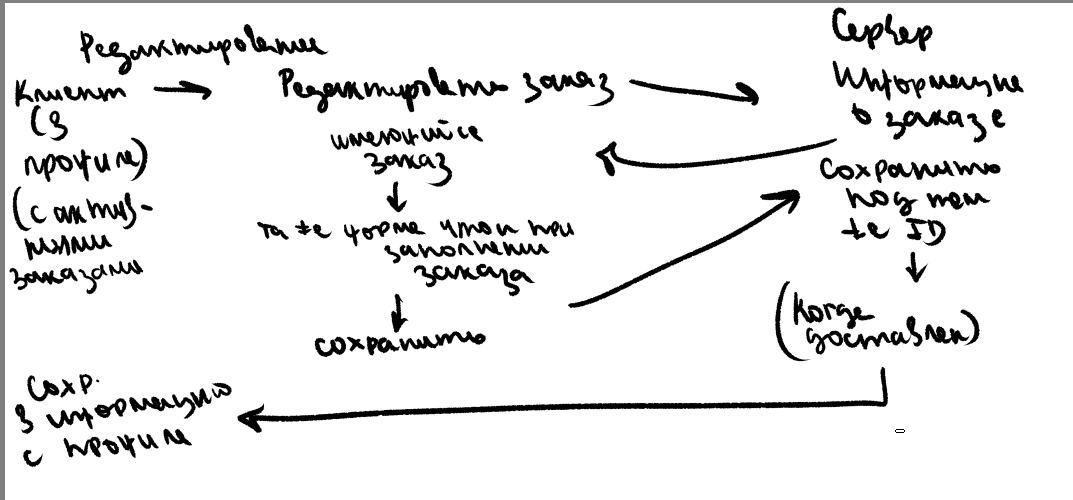 Редактирование
Клиент
(в
профиле)
(с актив-
ными
заказами
Редактировать заказ
имеющийся
заказ
та же форма что и при
заполнении
заказа
сохранить
Сервер
Информация
о заказе
Сохранить
под тем
же ID
(Когда
доставлен)
Сохр.
в информацию
с профиля